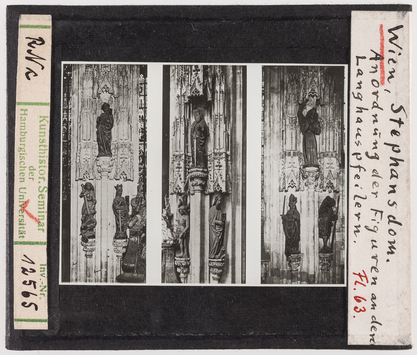 RNc
Kunsthistor. Seminar
der
Hamburgischen Universität
Inv.-Nr.
12565
Wien, Stephansdom.
Anordnung der Figuren an den
Langhauspfeilern.
Fl. 63.